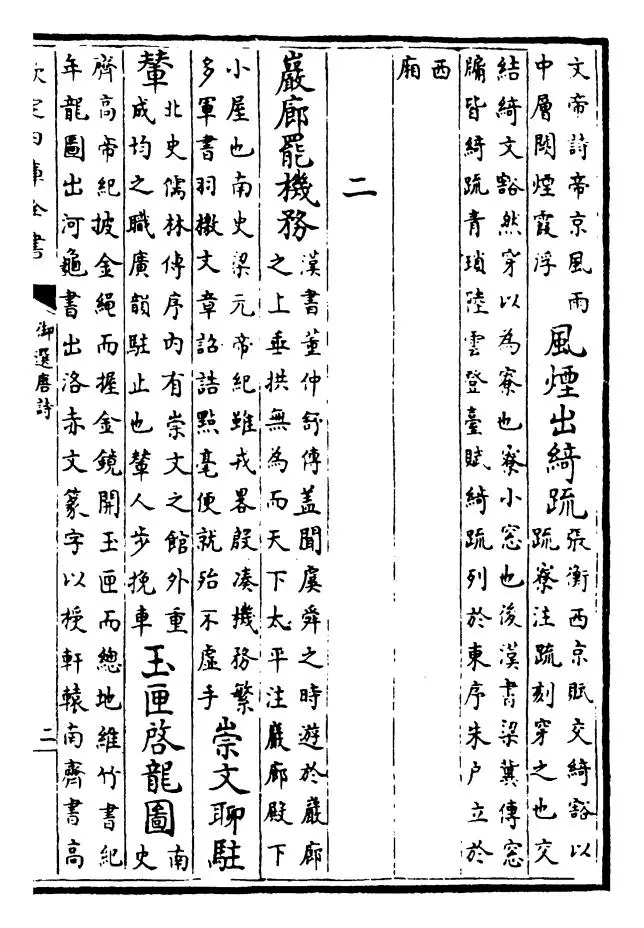 文帝詩帝京風雨
中層闕煙霞浮
風煙出綺疏
張衡西京賦交綺豁以
疏寮注疏刻穿之也交
結綺文豁然穿以為寮也寮小窓也後漢書梁冀傳窓
牖皆綺疏青瑣陸雲登臺賦綺疏列於東序朱户立於
西
廂
二
巖廊罷機務
漢書董仲舒傳蓋聞虞舜之時遊於巖廊
之上垂拱無為而天下太平注巖廊殿下
小屋也南史梁元帝紀雖戎畧殷湊機務繁
多軍書羽檄文章詔誥點毫便就殆不虚手
崇文聊駐
輦
北史儒林傳序内有崇文之館外重
成均之職廣韻駐止也輦人步挽車
玉匣啓龍圖
南
史
齊高帝紀披金繩而握金鏡開玉匣而總地維竹書紀
年龍圖出河龜書出洛赤文篆字以授軒轅南齊書高
欽定四庫全書
御選唐詩
二